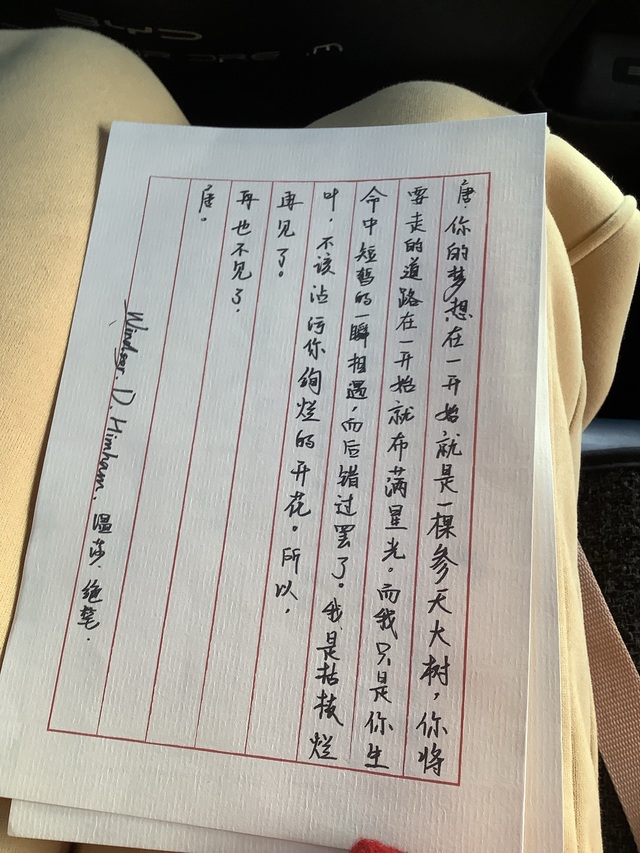 唐.你的梦想.在一开始就是一棵参天大树，你将
要走的道路在一开始就布满星光。而我只是你生
命中短暂的一瞬相遇，而后错过罢了。我是枯枝烂
叶，不该沾污你绚烂的开花。所以，
再见了。
再也不见了.
唐。
Windsor. D. Himham. 温莎. 绝笔.
BYD